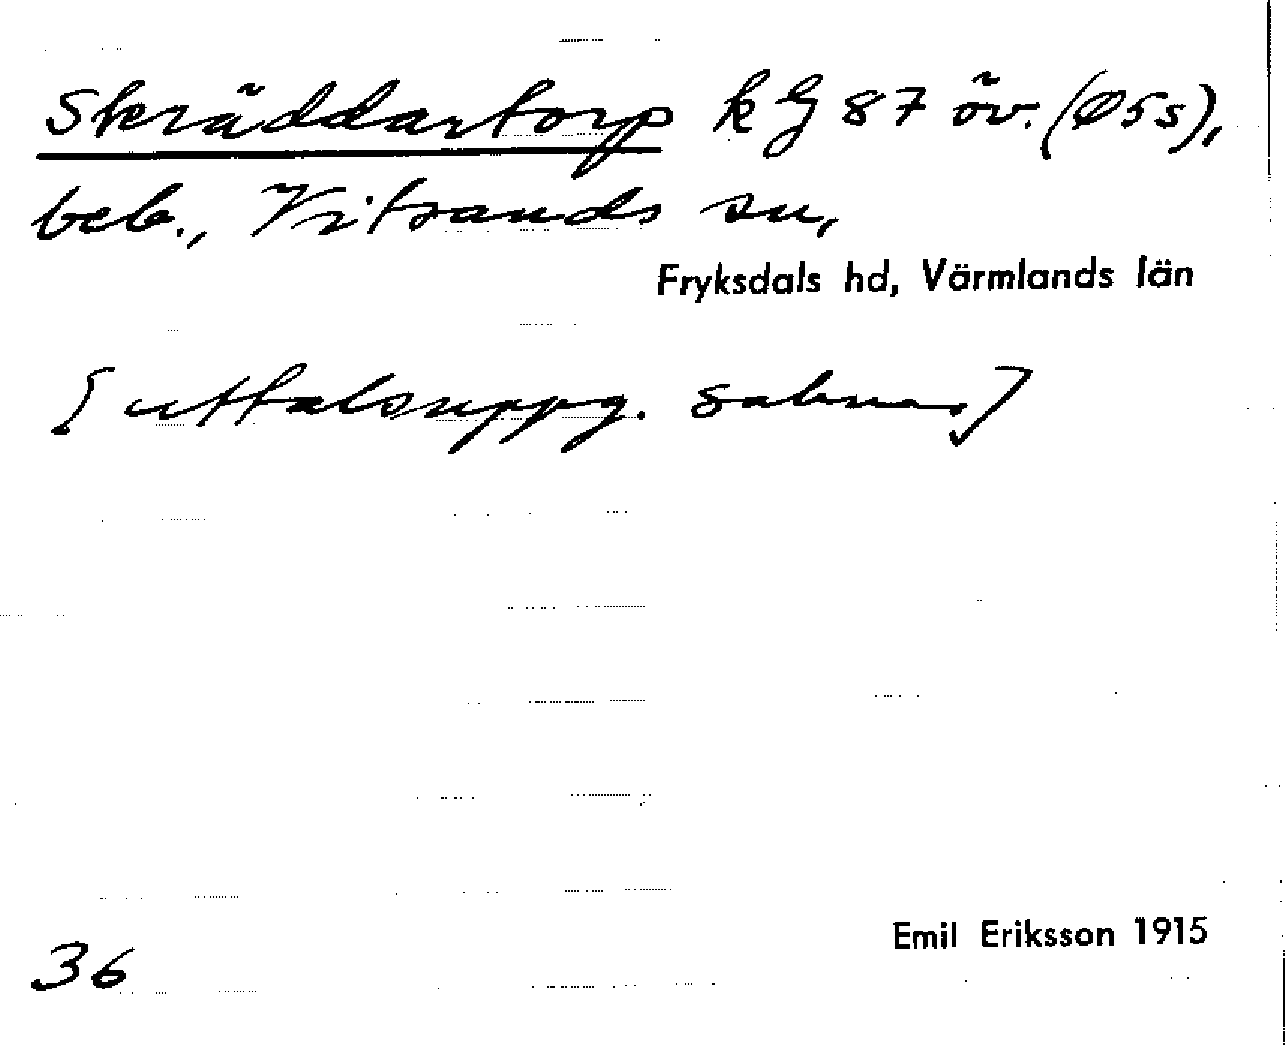 Skräddartorp k G 87 öv. (Ø5s),
beb., Vitsands sn,
Fryksdals hd, Värmlands län
[uttalsuppg. saknas]
Emil Eriksson 1915
36